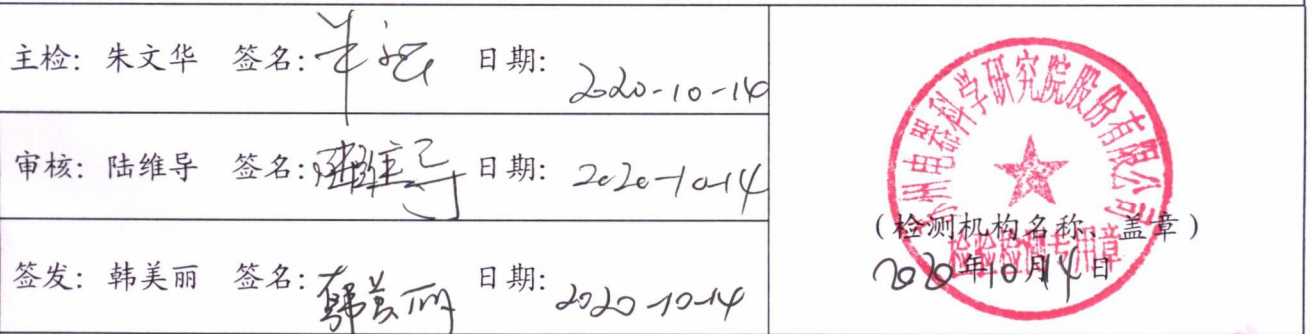 主检: 朱文华 签名: 日期: 2020-10-14
审核: 陆维导 签名: 陆维导 日期: 2020-10-14
签发: 韩美丽 签名: 韩美丽 日期: 2020-10-14
苏州电器科学研究院股份有限公司
(检测机构名称、盖章)
检验检测专用章
2020年10月14日